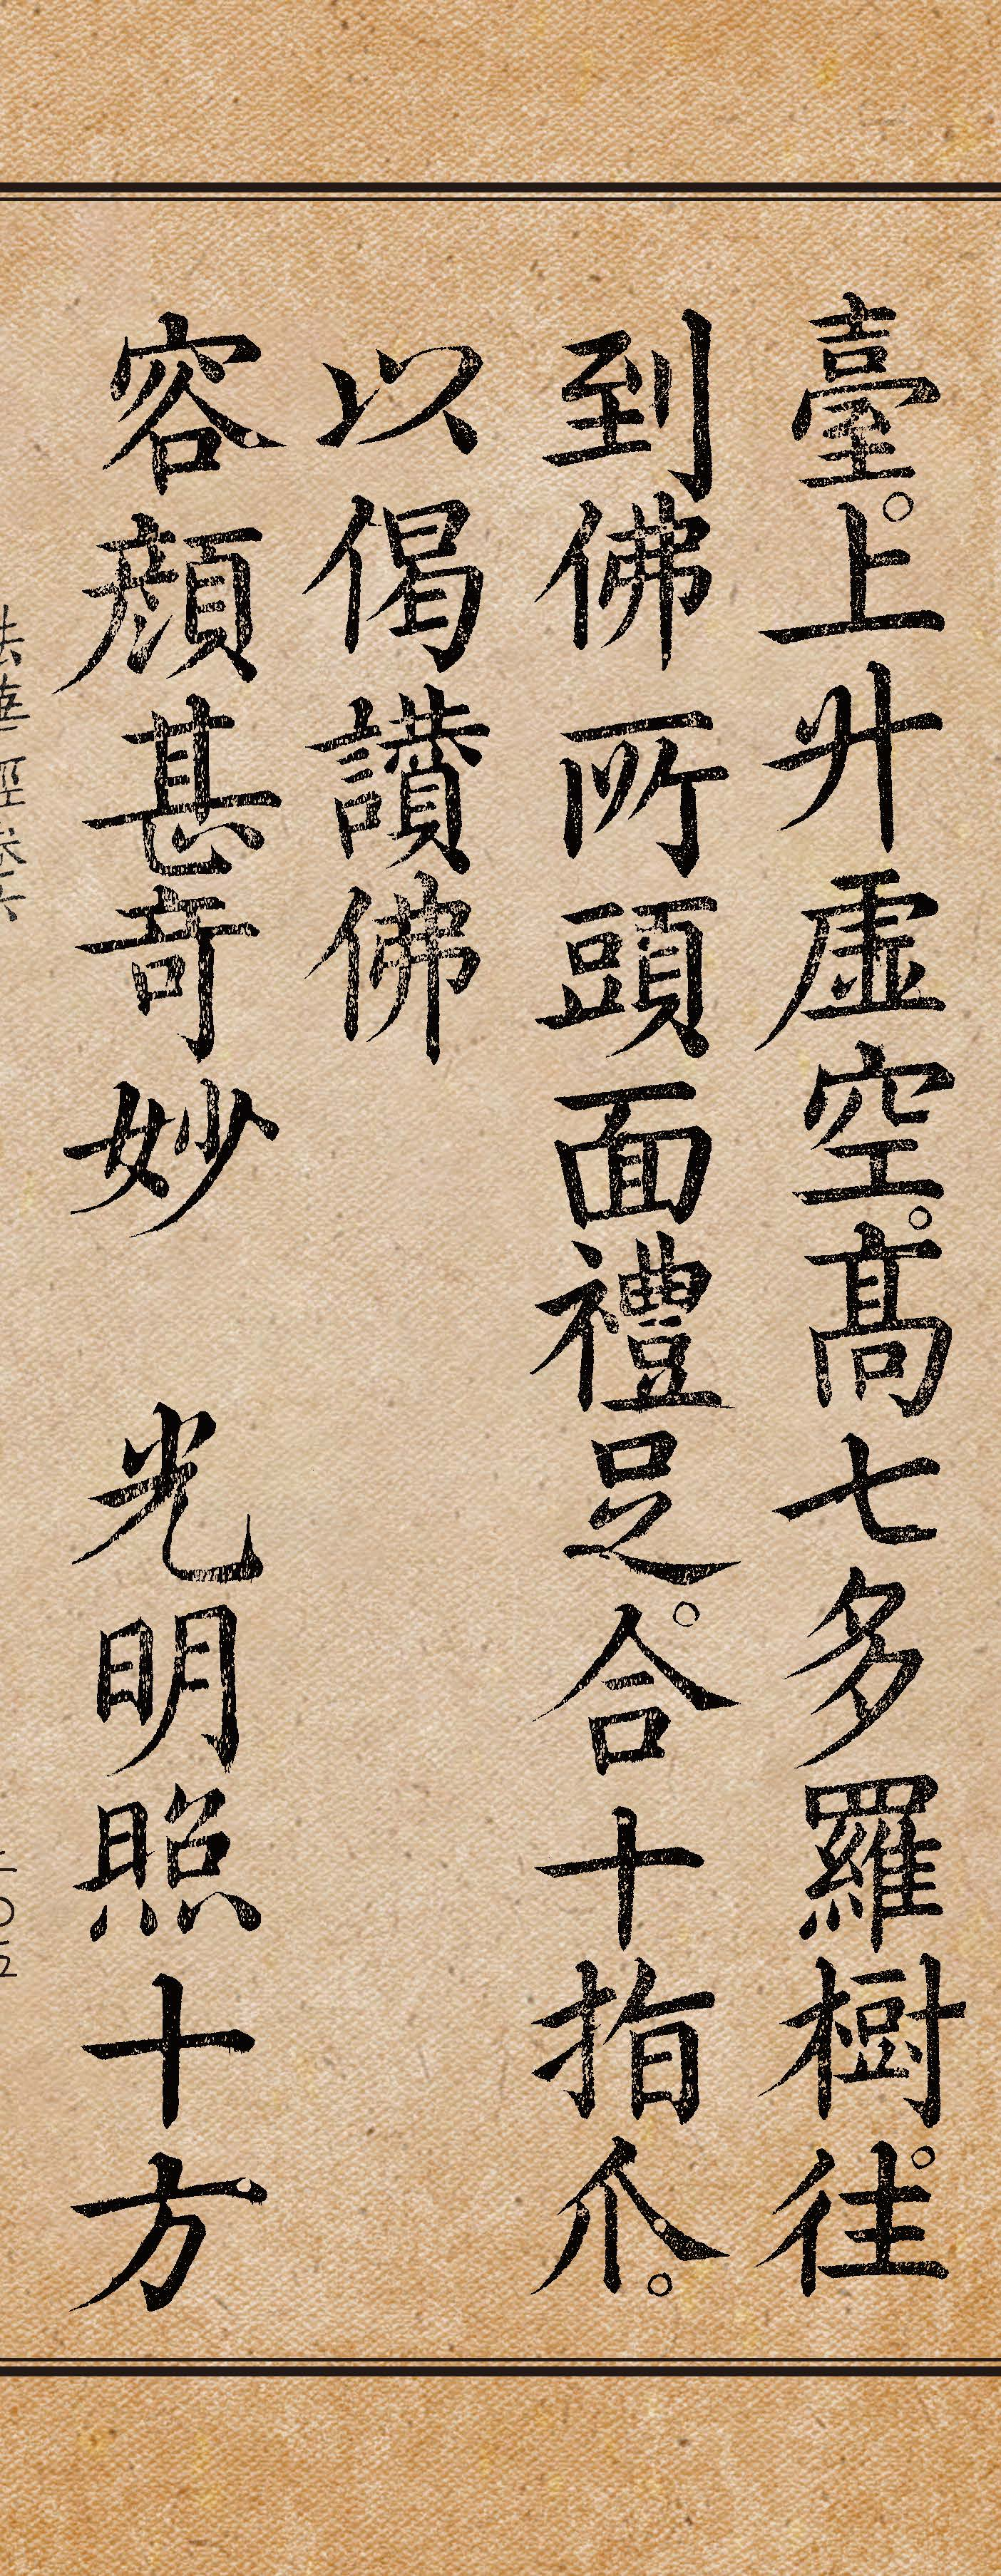 臺。上升虛空。高七多羅樹。往
到佛所頭面禮足。合十指爪。
以偈讚佛
容顏甚奇妙　光明照十方
法華經卷六
二〇五